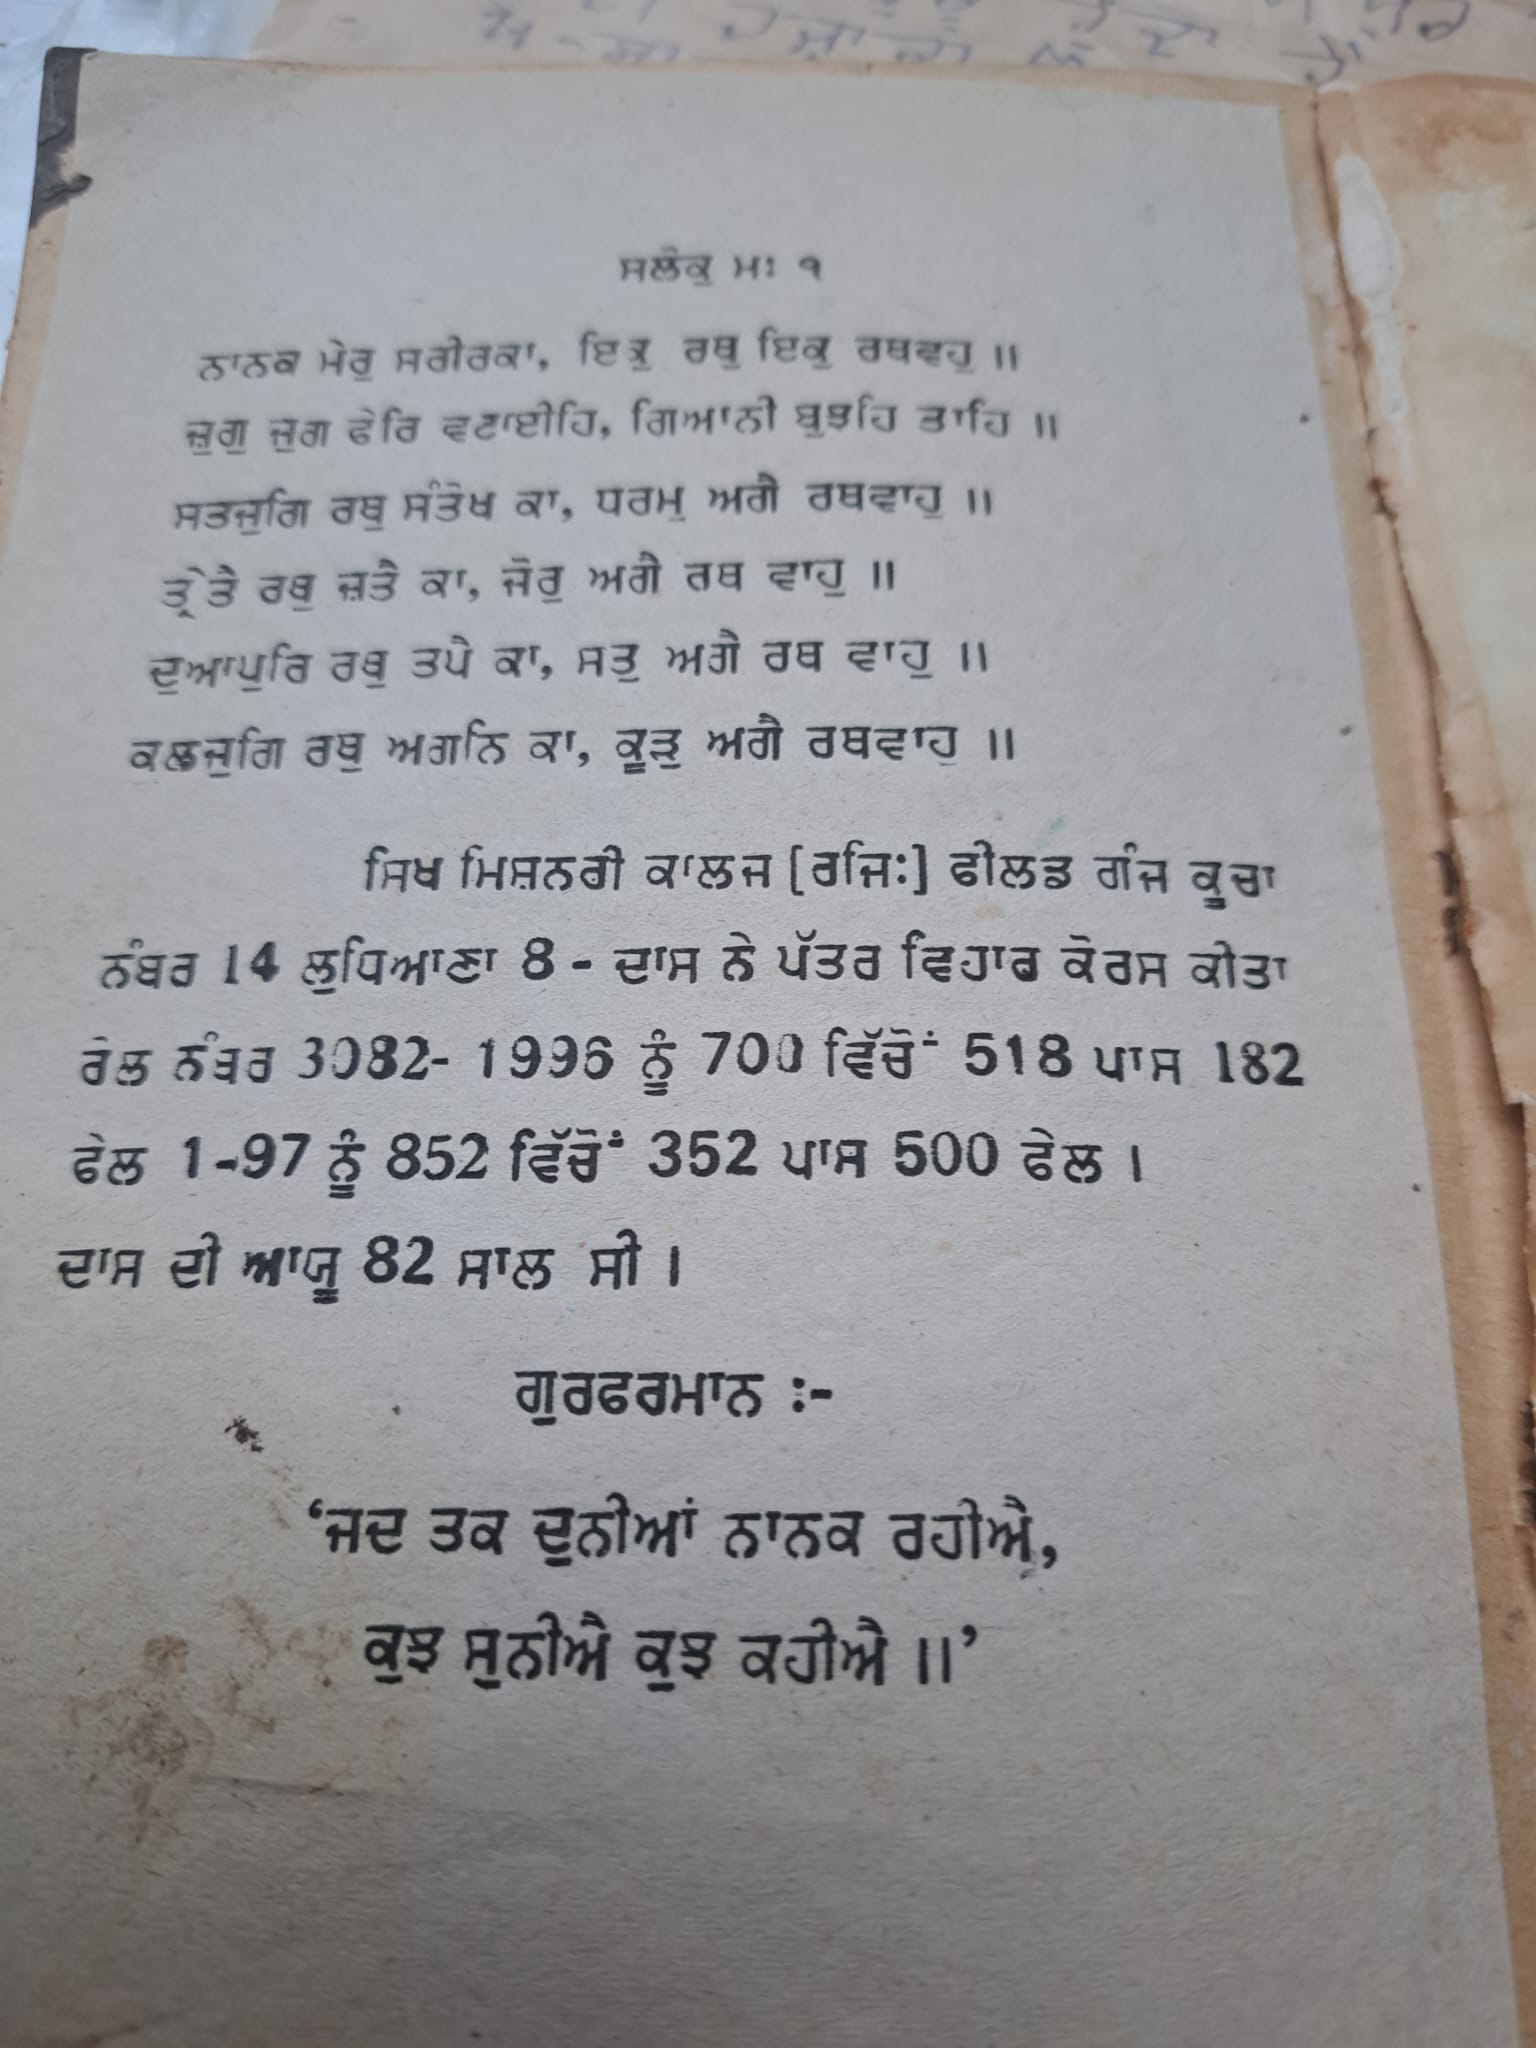 ਸਲੋਕੁ ਮਃ ੧
ਨਾਨਕ ਮੇਰੁ ਸਰੀਰਕਾ, ਇਕੁ ਰਥੁ ਇਕੁ ਰਥਵਾਹੁ ॥
ਜੁਗੁ ਜੁਗ ਫੇਰਿ ਵਟਾਈਹਿ, ਗਿਆਨੀ ਬੁਝਹਿ ਤਾਹਿ ॥
ਸਤਜੁਗਿ ਰਥੁ ਸੰਤੋਖ ਕਾ, ਧਰਮੁ ਅਗੈ ਰਥਵਾਹੁ ॥
ਤ੍ਰੇਤੈ ਰਥੁ ਜਤੈ ਕਾ, ਜੋਰੁ ਅਗੈ ਰਥ ਵਾਹੁ ॥
ਦੁਆਪੁਰਿ ਰਥੁ ਤਪੈ ਕਾ, ਸਤੁ ਅਗੈ ਰਥ ਵਾਹੁ ॥
ਕਲਜੁਗਿ ਰਥੁ ਅਗਨਿ ਕਾ, ਕੂੜੁ ਅਗੈ ਰਥਵਾਹੁ ॥
ਸਿਖ ਮਿਸ਼ਨਰੀ ਕਾਲਜ [ਰਜਿ:] ਫੀਲਡ ਗੰਜ ਕੂਚਾ
ਨੰਬਰ 14 ਲੁਧਿਆਣਾ 8 - ਦਾਸ ਨੇ ਪੱਤਰ ਵਿਹਾਰ ਕੋਰਸ ਕੀਤਾ
ਰੋਲ ਨੰਬਰ 3082- 1996 ਨੂੰ 700 ਵਿੱਚੋਂ 518 ਪਾਸ 182
ਫੇਲ 1-97 ਨੂੰ 852 ਵਿੱਚੋਂ 352 ਪਾਸ 500 ਫੇਲ ।
ਦਾਸ ਦੀ ਆਯੂ 82 ਸਾਲ ਸੀ ।
ਗੁਰਫਰਮਾਨ :-
‘ਜਦ ਤਕ ਦੁਨੀਆਂ ਨਾਨਕ ਰਹੀਐ,
ਕੁਝ ਸੁਨੀਐ ਕੁਝ ਕਹੀਐ ॥’